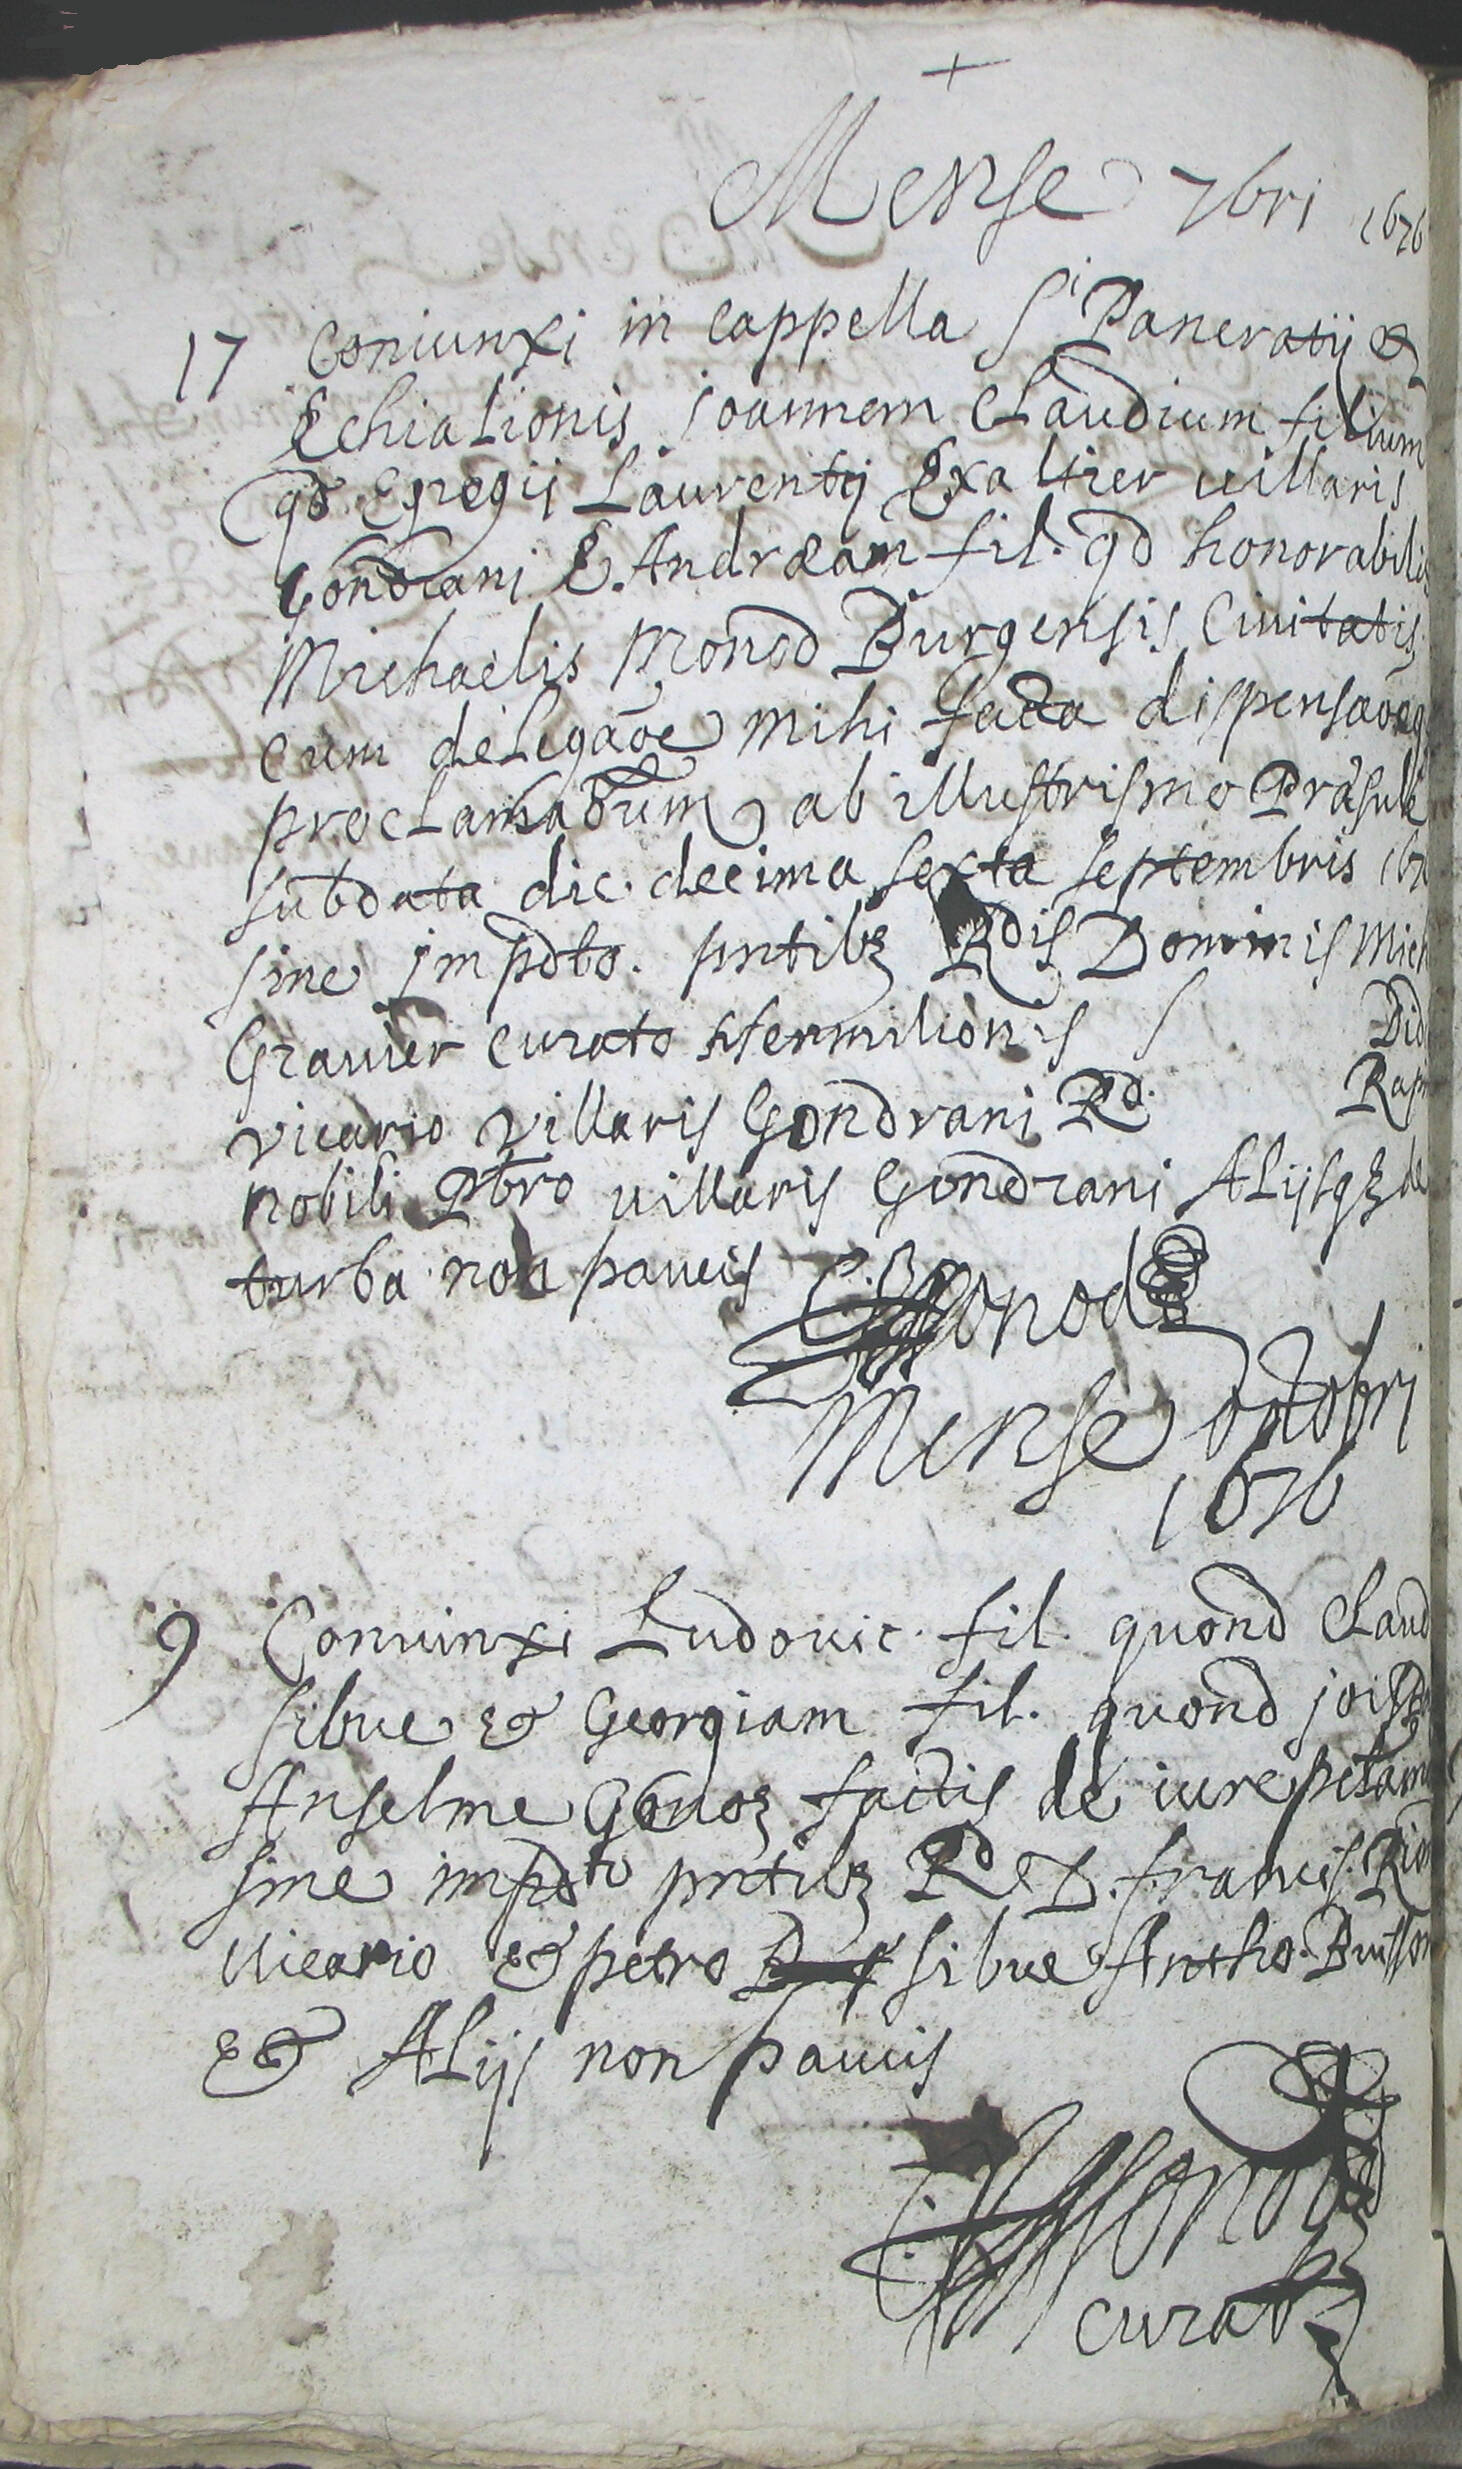 +
Mense 7bri 1676
17 Coniunxi in cappella Sti Pancratij &
Echialionis joannem Claudium filium
qd Egregij Laurentij Exaltier uillaris
Gondrani & Andræam fil. qd honorabilis
Michaelis Monod Burgensis Ciuitatis
cum delegaõe mihi facta dispensaõeq
proclamaõum ab illustrismo Præsule
subdata die decima sexta septembris 167
sine jmpdto. pntibz Rdis Dominis Mich
Grauier curato stermilionis S Did
vicario villaris Gondrani Rd. Rap
nobili Pbro uillaris Gondrani Alijsqz de
turba non paucis Monod
Mense octobri
1676
9 Coniunxi Ludouic. fil. quond Claud
sibue & Georgiam fil. quond jois
Anselme factis de iure petam
sine impdto pntibz Rd D. francis.
uicario & petro sibue Antho. Buisson
& Alijs non paucis
Monod
curat